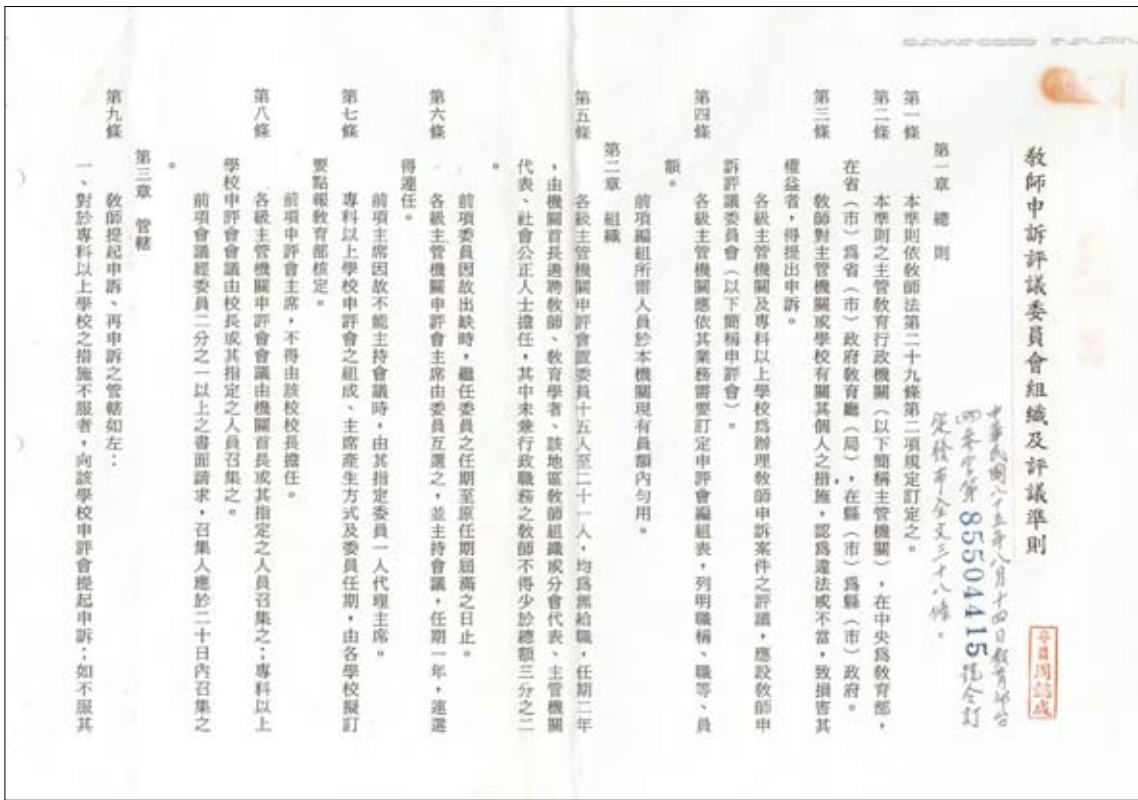 教師申訴評議委員會組織及評議準則
中華民國八十五年八月十四日教育部台
四參字第85504415號令訂
定發布全文三十八條。
專員周懿成
第一章 總則
第一條 本準則依教師法第二十九條第二項規定訂定之。
第二條 本準則之主管教育行政機關(以下簡稱主管機關),在中央爲教育部,
在省(市)爲省(市)政府教育廳(局),在縣(市)爲縣(市)政府。
第三條 教師對主管機關或學校有關其個人之措施,認爲違法或不當,致損害其
權益者,得提出申訴。
各級主管機關及專科以上學校爲辦理教師申訴案件之評議,應設教師申
訴評議委員會(以下簡稱申評會)。
第四條 各級主管機關應依其業務需要訂定申評會編組表,列明職稱、職等、員
額。
前項編組所需人員於本機關現有員額內勻用。
第二章 組織
第五條 各級主管機關申評會置委員十五人至二十一人,均爲無給職,任期二年
,由機關首長遴聘教師、教育學者、該地區教師組織或分會代表、主管機關
代表、社會公正人士擔任,其中未兼行政職務之教師不得少於總額三分之二
。
前項委員因故出缺時,繼任委員之任期至原任期屆滿之日止。
第六條 各級主管機關申評會主席由委員互選之,並主持會議,任期一年,連選
得連任。
前項主席因故不能主持會議時,由其指定委員一人代理主席。
第七條 專科以上學校申評會之組成、主席產生方式及委員任期,由各學校擬訂
要點報教育部核定。
前項申評會主席,不得由該校校長擔任。
第八條 各級主管機關申評會會議由機關首長或其指定之人員召集之;專科以上
學校申評會會議由校長或其指定之人員召集之。
前項會議經委員二分之一以上之書面請求,召集人應於二十日內召集之
。
第三章 管轄
第九條 教師提起申訴、再申訴之管轄如左:
一、對於專科以上學校之措施不服者,向該學校申評會提起申訴;如不服其